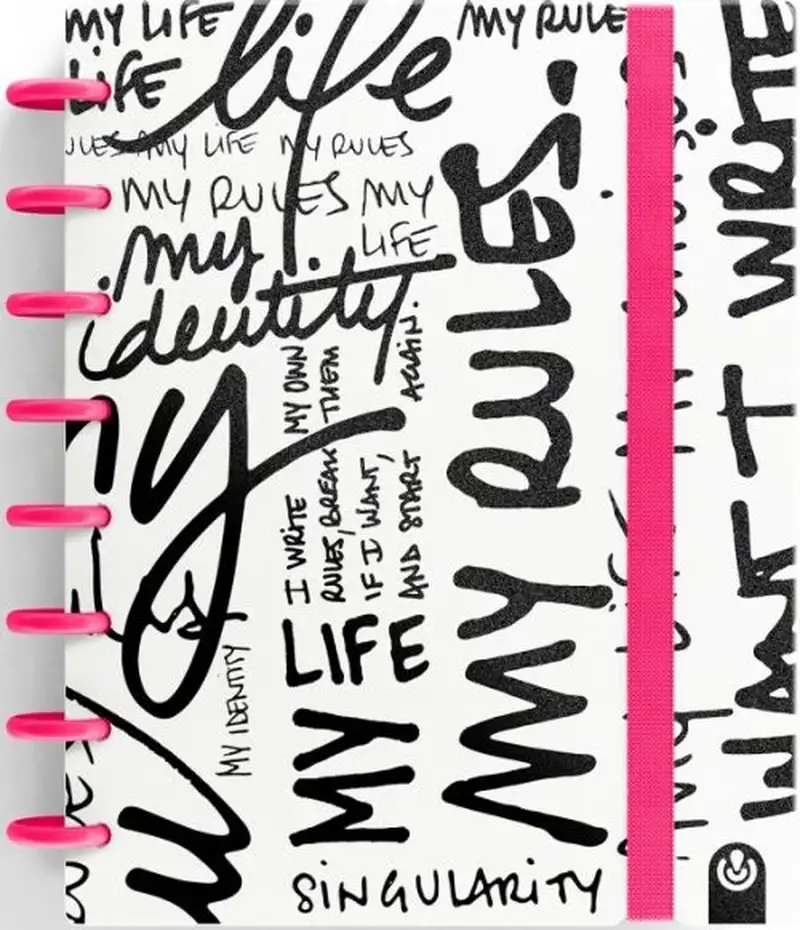 MY LIFE
MY RULE
LIFE
life
ULES MY LIFE MY RULES
MY RULES MY
LIFE
my
identity
I WRITE MY OWN
RULES, BREAK THEM
IF I WANT,
AND START AGAIN.
MY RULES.
WANT I WRITE
my
MY IDENTITY
LIFE
MY
SINGULARITY